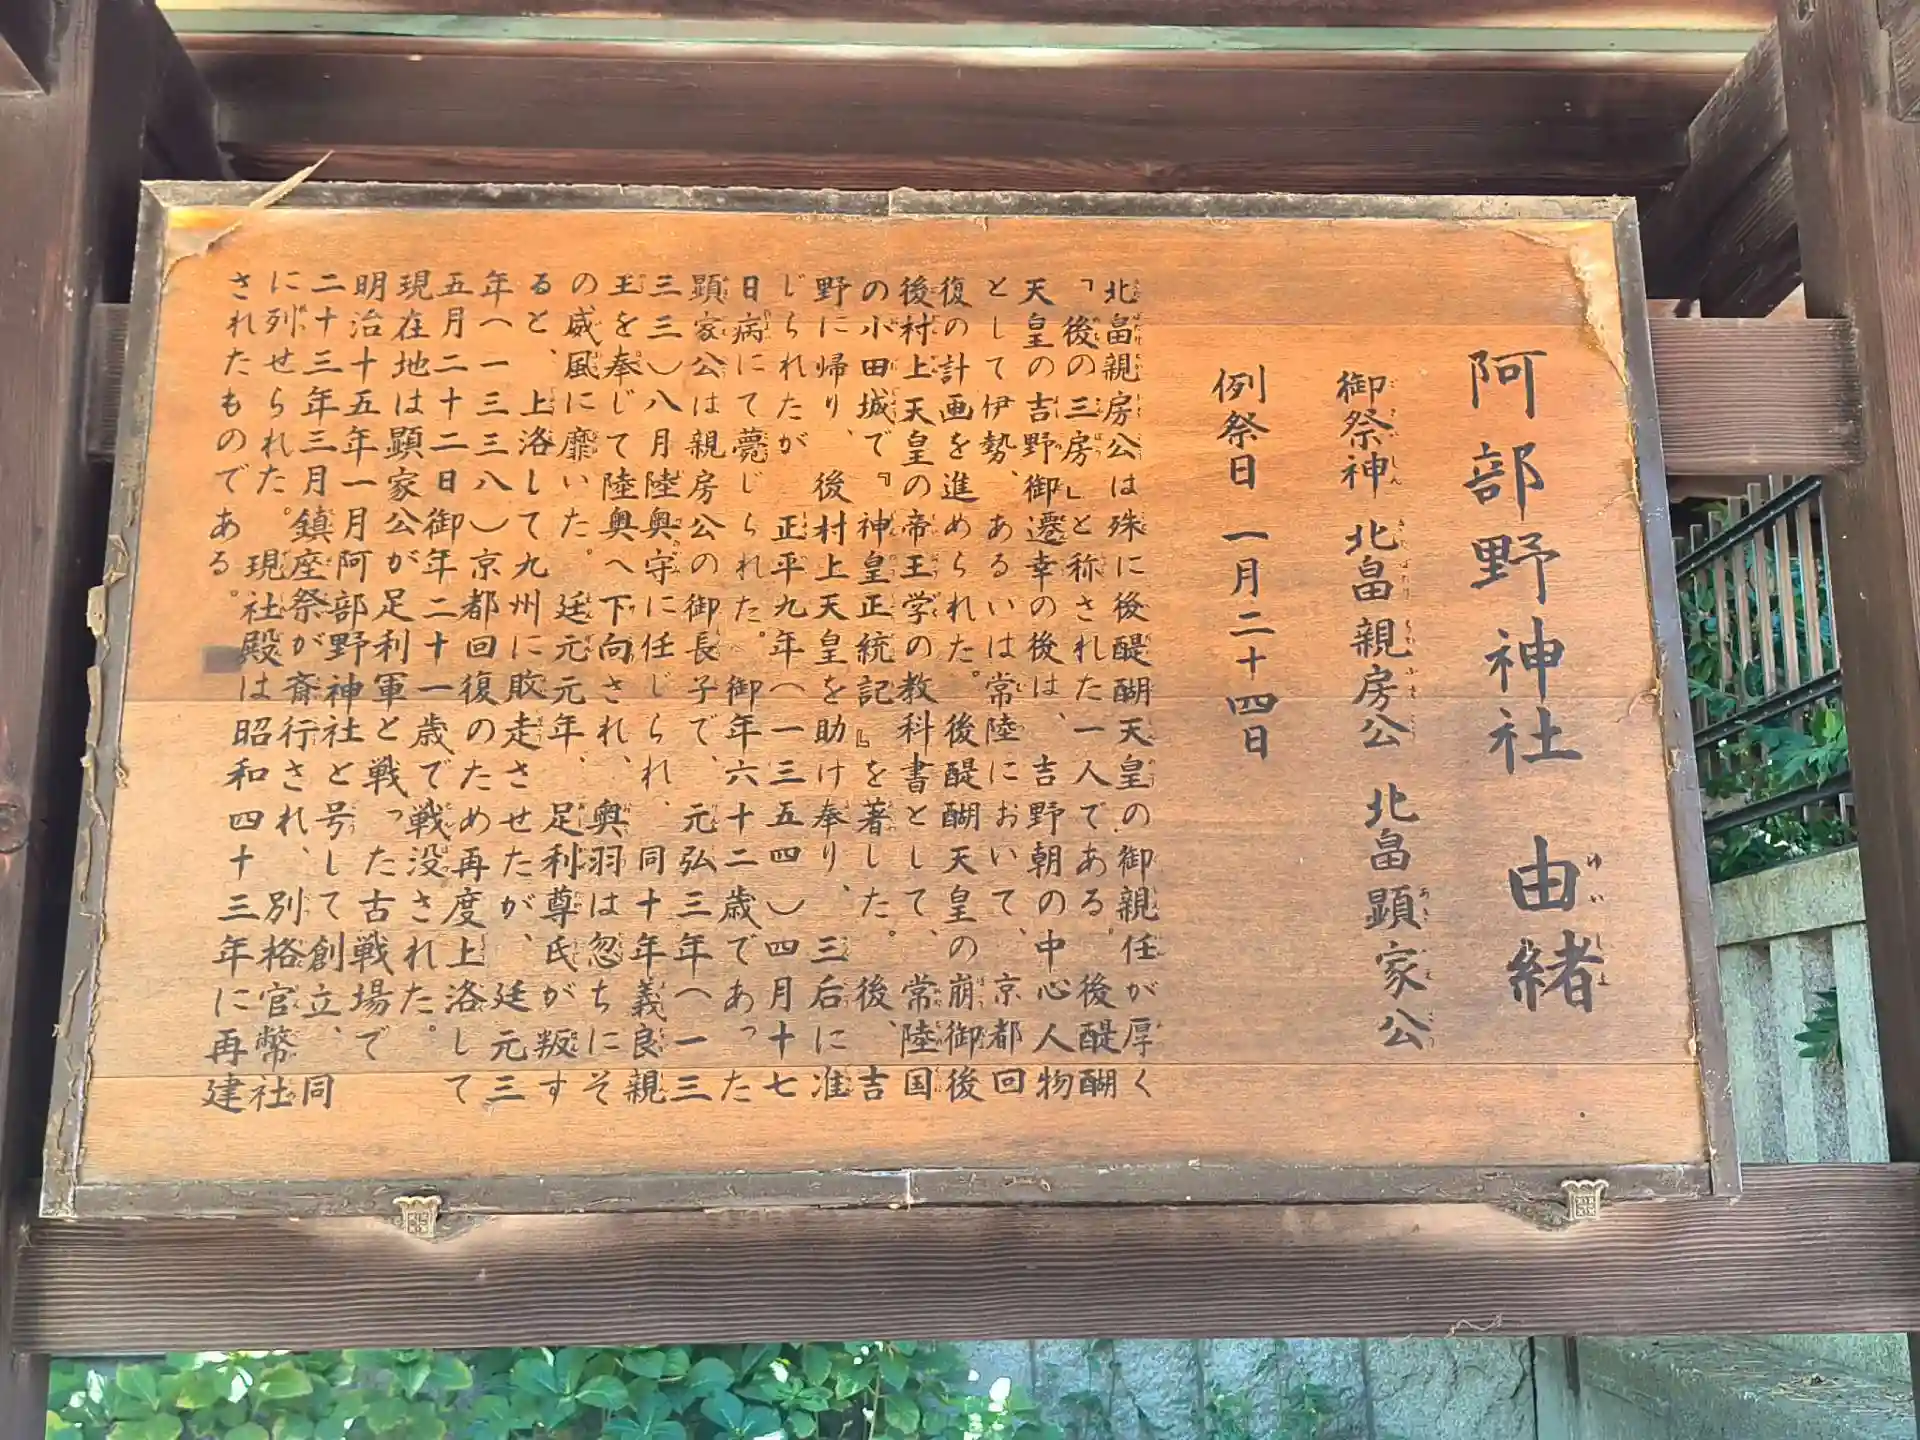 阿部野神社 由緒
御祭神 北畠親房公 北畠顕家公
例祭日 一月二十四日
北畠親房公は殊に後醍醐天皇の御親任が厚く
『後の三房』と称された一人である。後醍醐
天皇の吉野御遷幸の後は、吉野朝の中心人物
として伊勢、あるいは常陸において、京都回
復の計画を進められた。後醍醐天皇の崩御後
後村上天皇の帝王学の教科書として、常陸国
の小田城で『神皇正統記』を著した。後、吉
野に帰り、後村上天皇を助け奉り、三后に准
じられたが 正平九年(一三五四)四月十七
日病にて薨じられた。御年六十二歳であった
顕家公は親房公の御長子で、元弘三年(一三
三三)八月陸奥守に任じられ、同十年義良親
王を奉じて陸奥へ下向され、奥羽は忽ちにそ
の威風に靡いた。廷元元年、足利尊氏が叛す
ると、上洛して九州に敗走させたが、廷元三
年(一三三八)京都回復のため再度上洛して
五月二十二日御年二十一歳で戦没された。
現在地は顕家公が足利軍と戦った古戦場で
明治十五年一月阿部野神社と号して創立、同
二十三年三月鎮座祭が斎行され、別格官幣社
に列せられた。現社殿は昭和四十三年に再建
されたものである。